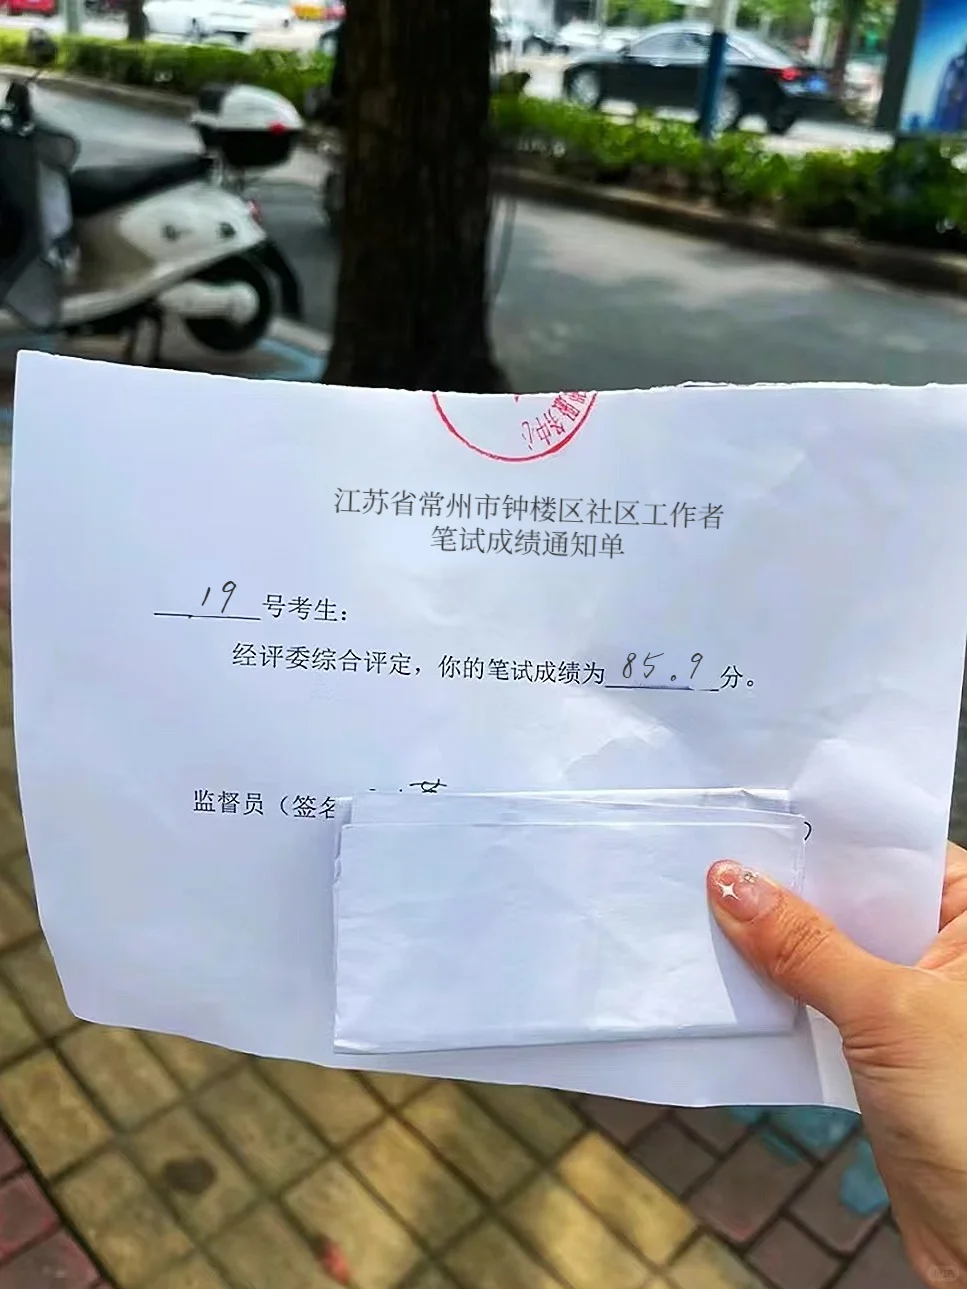 服务中心
江苏省常州市钟楼区社区工作者
笔试成绩通知单
19 号考生：
经评委综合评定，你的笔试成绩为 85.9 分。
监督员（签名